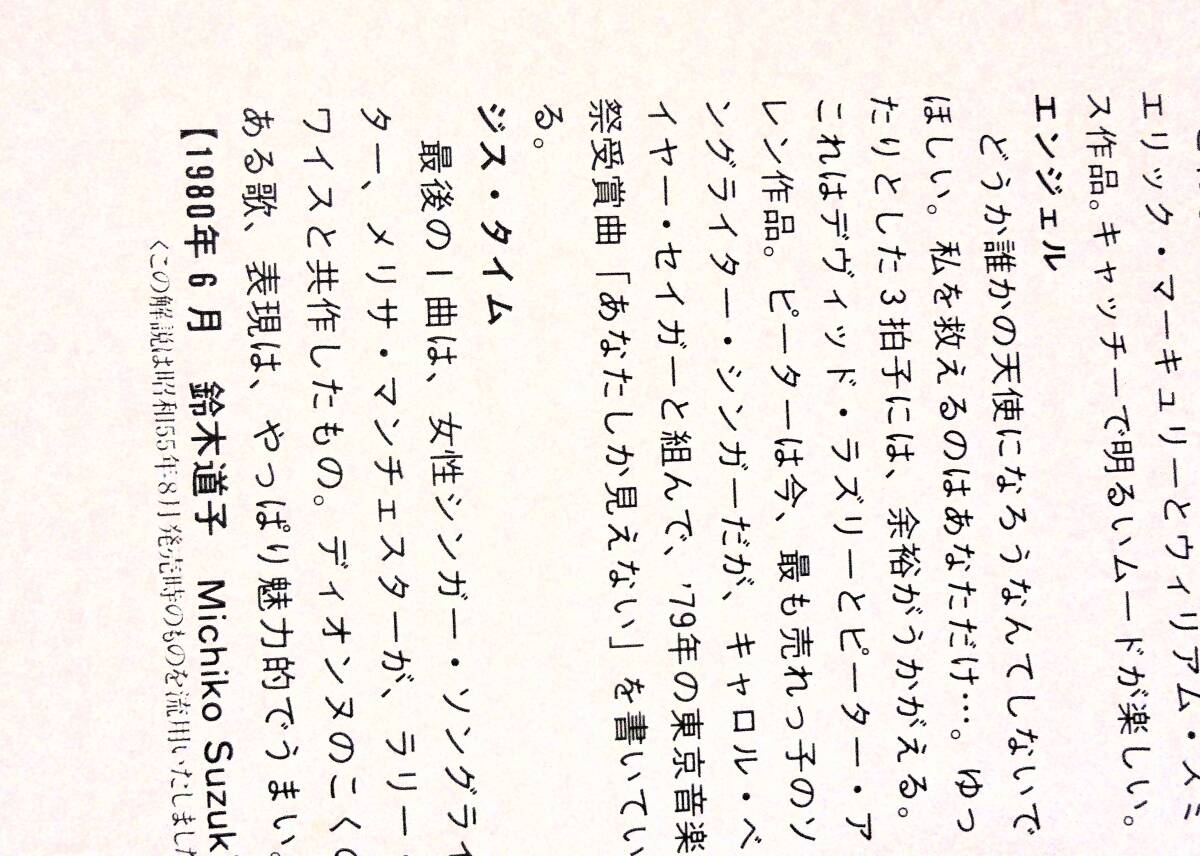 エリック・マーキュリーとウィリアム・スミ
ス作品。キャッチーで明るいムードが楽しい。
エンジェル
どうか誰かの天使になろうなんてしないで
ほしい。私を救えるのはあなただけ…。ゆっ
たりとした3拍子には、余裕がうかがえる。
これはデヴィッド・ラズリーとピーター・ア
レン作品。ピーターは今、最も売れっ子のソ
ングライター・シンガーだが、キャロル・ベ
イヤー・セイガーと組んで、'79年の東京音楽
祭受賞曲「あなたしか見えない」を書いてい
る。
ジス・タイム
最後の1曲は、女性シンガー・ソングライ
ター、メリサ・マンチェスターが、ラリー・
ワイスと共作したもの。ディオンヌのこくの
ある歌、表現は、やっぱり魅力的でうまい。
【1980年6月 鈴木道子 Michiko Suzuk
〈この解説は昭和55年8月発売時のものを流用いたしました